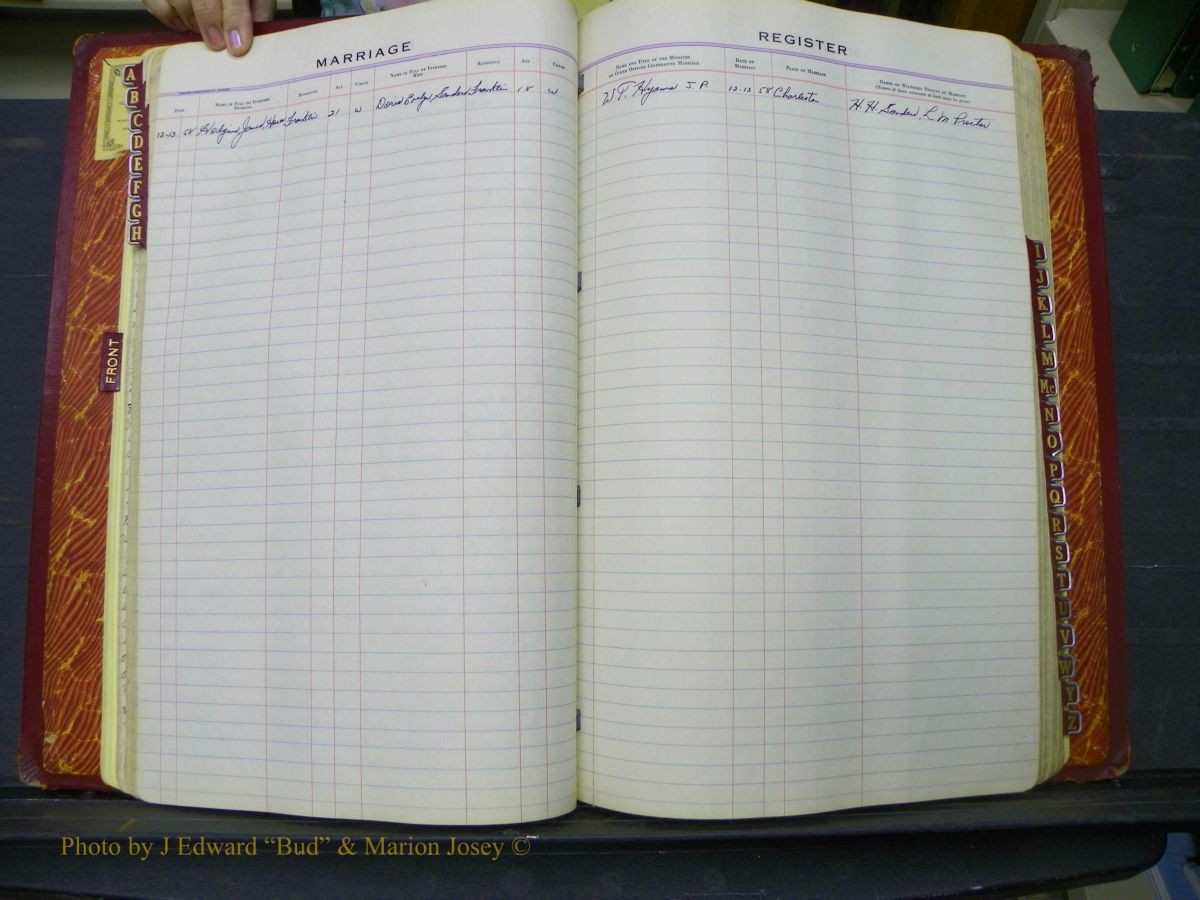 MARRIAGE
REGISTER
Date
Name in Full of Intended Husband
Residence
Age
Color
Name in Full of Intended Wife
Residence
Age
Color
Name and Title of the Minister or Other Officer Celebrating Marriage
Date of Marriage
Place of Marriage
Names of Witnesses Present at Marriage
(Names of three witnesses at least must be given)
12-13 58 Hodgins, James Franklin 21 W Doris Evelyn Sanders Franklin 18 W
W. P. Hyams J. P. 12-13 58 Charleston H. H. Sanders, L. M. Proctor
A
B
C
D
E
F
G
H
FRONT
I
J
K
L
M
Mc
N
O
P
Q
R
S
T
U
V
W
Y
Z
Photo by J Edward “Bud” & Marion Josey ©